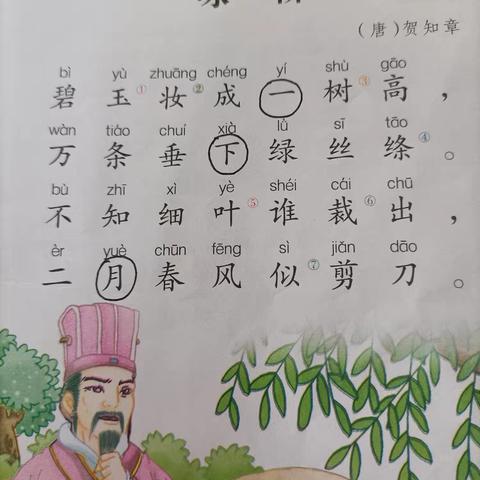 (唐)贺知章
bì yù zhuāng chéng yí shù gāo
碧玉①妆②成一树③高，
wàn tiáo chuí xià lǜ sī tāo
万条垂下绿丝绦④。
bù zhī xì yè shéi cái chū
不知细叶⑤谁裁⑥出，
èr yuè chūn fēng sì jiǎn dāo
二月春风似⑦剪刀。